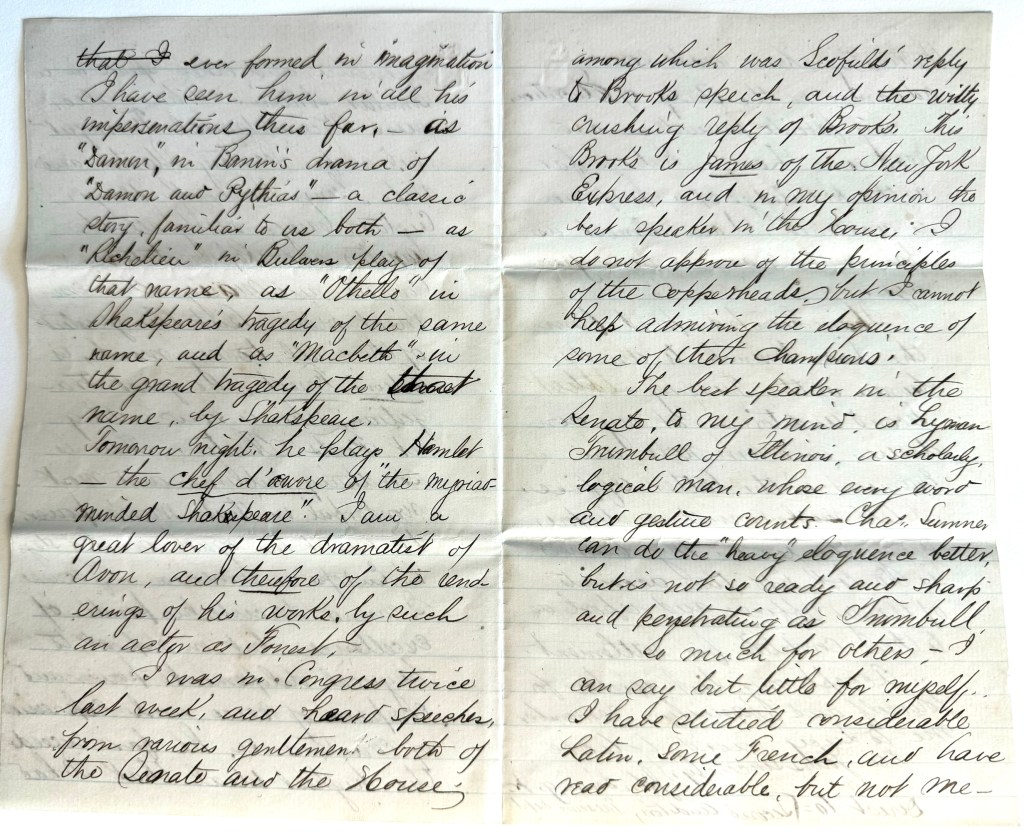 that I ever formed in imagination
I have seen him in all his
impersonations, thus far, — as
"Damon", in Banim's drama of
"Damon and Pythias" — a classic
story, familiar to us both — as
"Richelieu" in Bulwers play of
that name, as "Othello" in
Shakspeare's tragedy of the same
name, and as "Macbeth" in
the grand tragedy of the
name, by Shakspeare.
Tomorrow night, he plays Hamlet
— the chef d'œuvre of "the myriad-
minded Shakspeare". I am a
great lover of the dramatist of
Avon, and therefore of the rend-
erings of his works, by such
an actor as Forrest.
I was in Congress twice
last week, and heard speeches,
from various gentlemen both of
the Senate and the House;
among which was Scofield's reply
to Brooks speech, and the witty
crushing reply of Brooks. This
Brooks is James of the New York
Express, and in my opinion the
best speaker in the House; I
do not approve of the principles
of the copperheads, but I cannot
help admiring the eloquence of
some of their champions.
The best speaker in the
Senate, to my mind is Lyman
Trumbull of Illinois, a scholarly,
logical man, whose every word
and gesture counts. — Chas. Sumner
can do the "heavy" eloquence better,
but is not so ready and sharp
and penetrating as Trumbull,
So much for others, — I
can say but little for myself.
I have studied considerable
Latin, some French, and have
read considerable, but not me—